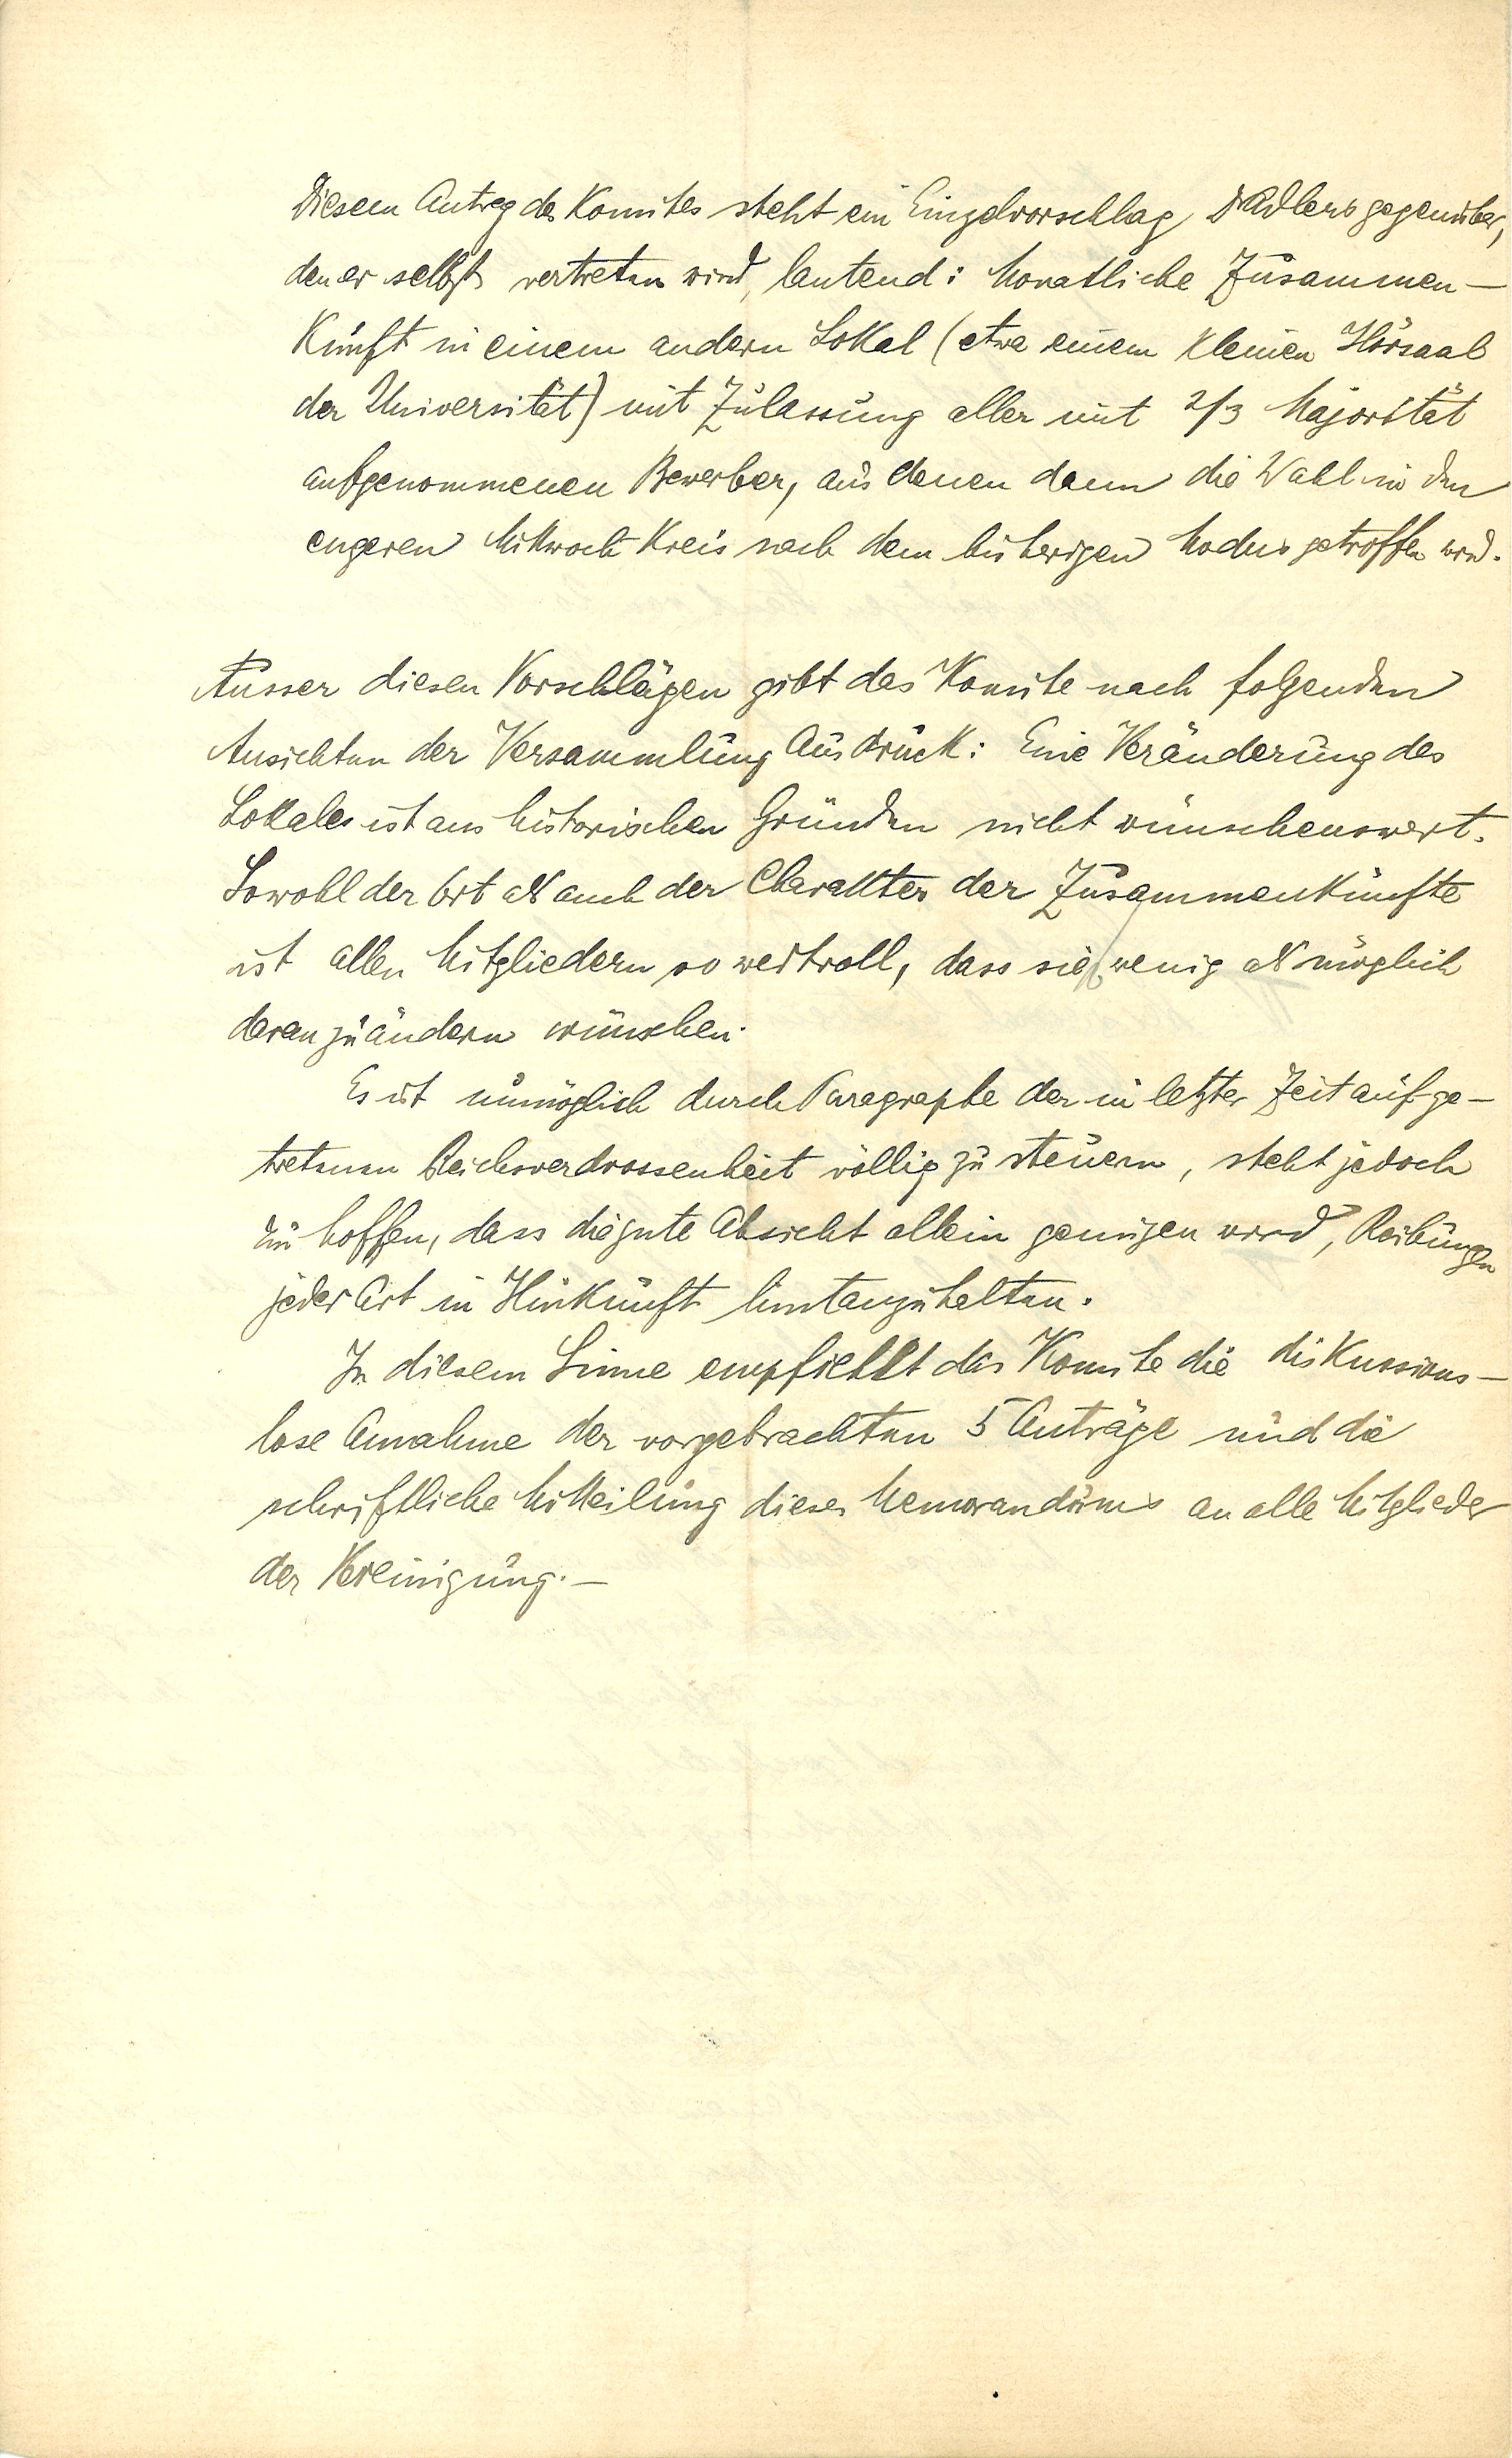 Diesem Antrag des Komites steht ein Einzelvorschlag Dr Adlers gegenüber,
den er selbst vertreten wird, lautend: Monatliche Zusammen-
kunft in einem andern Lokal (etwa einem kleinen Hörsaal
der Universität) mit Zulassung aller mit 2/3 Majorität
aufgenommenen Bewerber, aus denen dann die Wahl in den
engeren Mittwoch Kreis nach dem bisherigen Modus getroffen wird.
Ausser diesen Vorschlägen gibt das Komite nach folgenden
Ansichten der Versammlung Ausdruck: Eine Veränderung des
Lokales ist aus historischen Gründen nicht wünschenswert.
Sowohl der Ort als auch der Charakter der Zusammenkünfte
ist allen Mitgliedern so wertvoll, dass sie wenig als möglich
daran zu ändern wünschen.
Es ist unmöglich durch Paragraphe der in letzter Zeit aufge-
tretenen Reichsverdrossenheit völlig zu steuern, steht jedoch
zu hoffen, dass die gute Absicht allein genügen wird, Reibungen
jeder Art in Hinkunft hintanzuhalten.
In diesem Sinne empfiehlt das Komite die diskussions-
lose Annahme der vorgebrachten 5 Anträge und die
schriftliche Mitteilung dieses Memorandums an alle Mitglieder
der Vereinigung.-